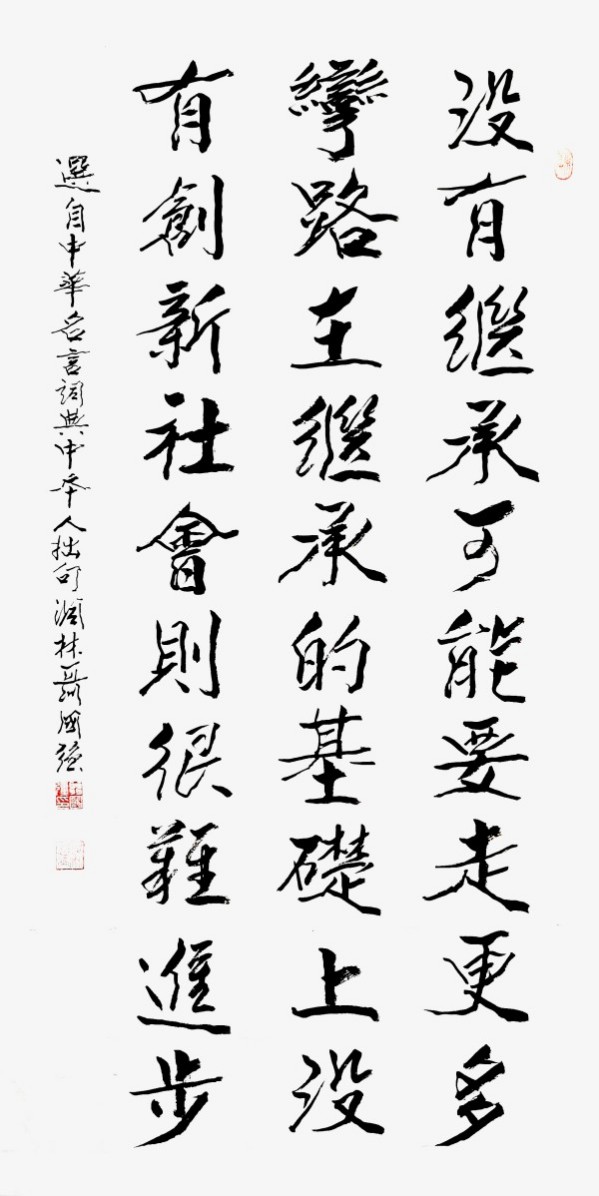 没有繼承可能要走更多
彎路在繼承的基礎上没
有創新社會則很難進步
選自中華名言詞典中本人拙句 林聶國強